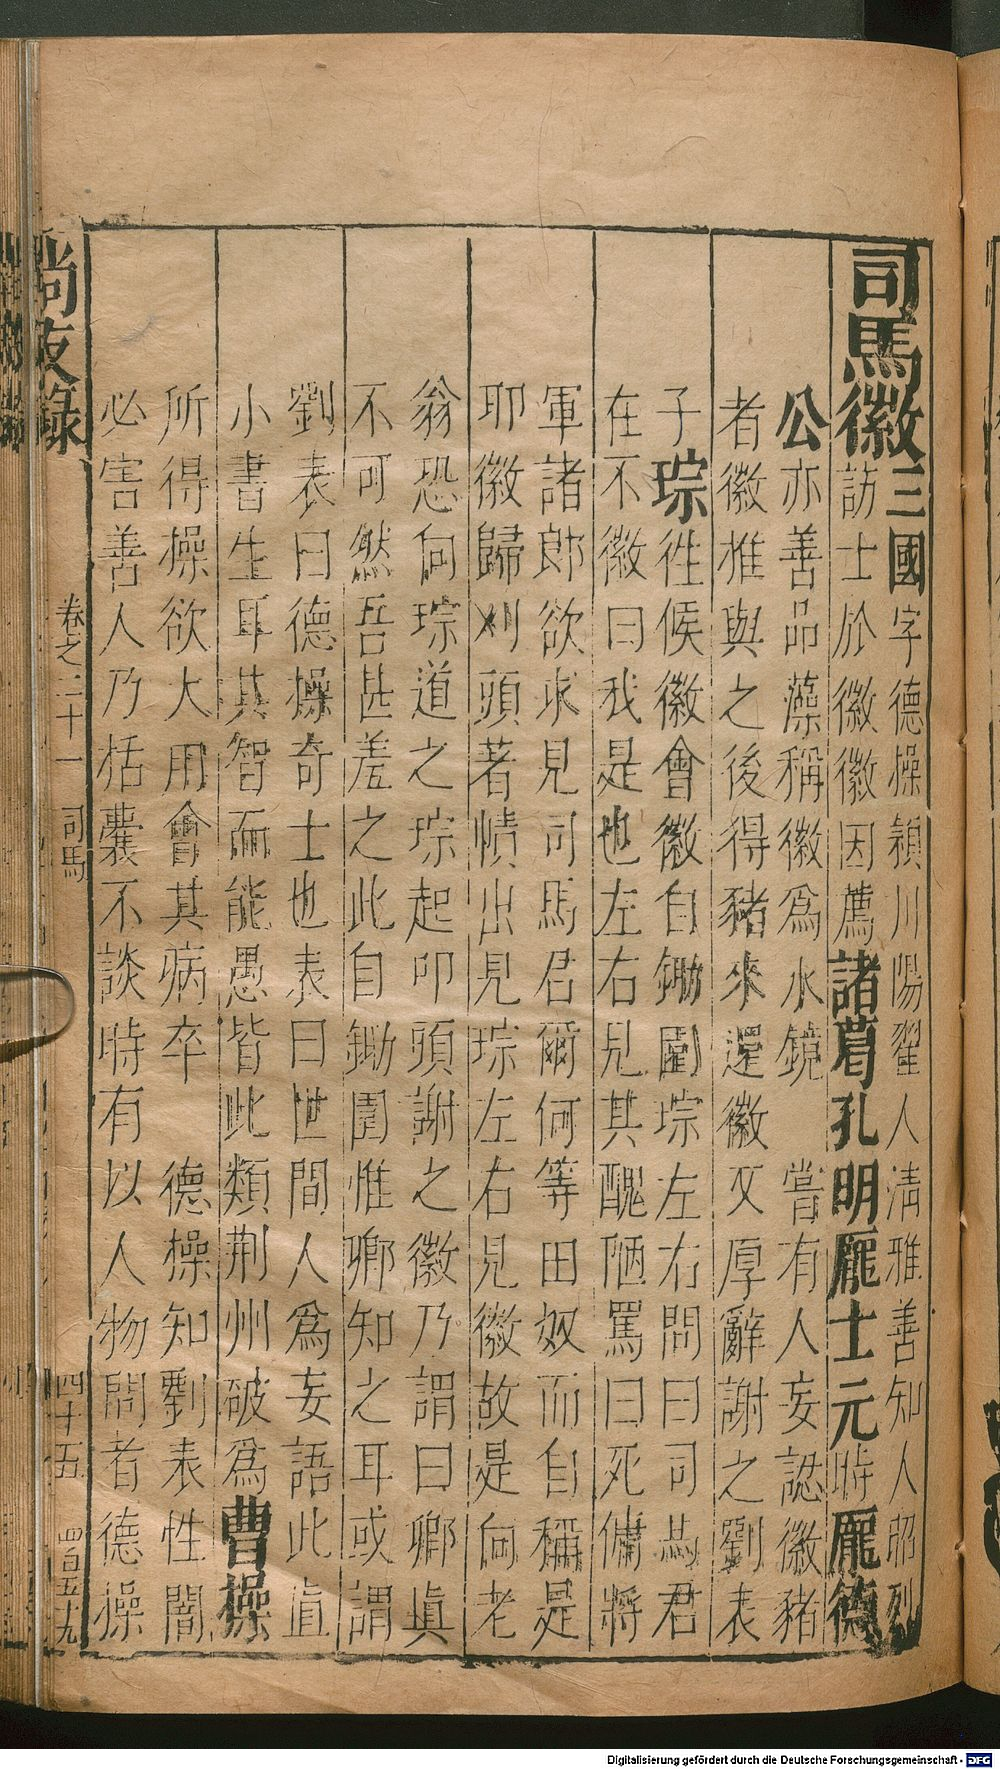 司馬徽
三國字德操潁川陽翟人清雅善知人昭烈
訪士於徽徽因薦諸葛孔明龐士元時龐德
公亦善品藻稱徽爲水鏡 嘗有人妄認徽豬
者徽推與之後得豬來還徽又厚辭謝之劉表
子琮徃候徽會徽自鋤園琮左右問曰司馬君
在不徽曰我是也左右見其醜陋罵曰死傭將
軍諸郎欲求見司馬君爾何等田奴而自稱是
耶徽歸刈頭著幘出見琮左右見徽故是向老
翁恐向琮道之琮起叩頭謝之徽乃謂曰卿眞
不可然吾甚羞之此自鋤園惟卿知之耳或謂
劉表曰德操奇士也表曰世間人爲妄語此直
小書生耳其智而能愚皆此類荆州破爲曹操
所得操欲大用會其病卒 德操知劉表性闇
必害善人乃括囊不談時有以人物問者德操
尚友錄
卷之二十一
司馬
四十五
四百五十九
Digitalisierung gefördert durch die Deutsche Forschungsgemeinschaft - DFG